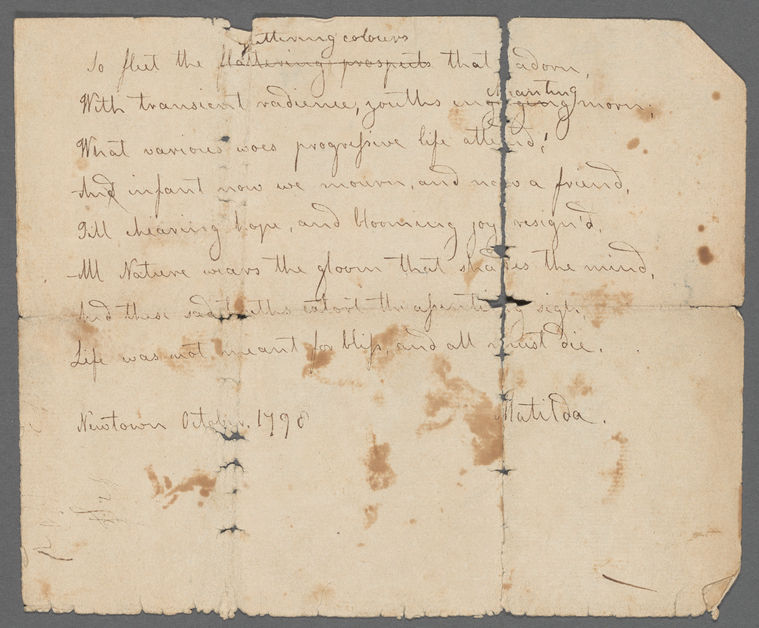 glittering colours
So fleet the flattering prospects that adorn,
chanting
With transient radience, youths morn;
What various woes progressive life attend!
An infant now we mourn, and now a friend,
Till chearing hope, and blooming joy resign'd,
All Nature wears the gloom that shades the mind,
And these sad truths extort the assenting sigh,
Life was not meant for bliss, and all must die.
Newtown October. 1798 Matilda.